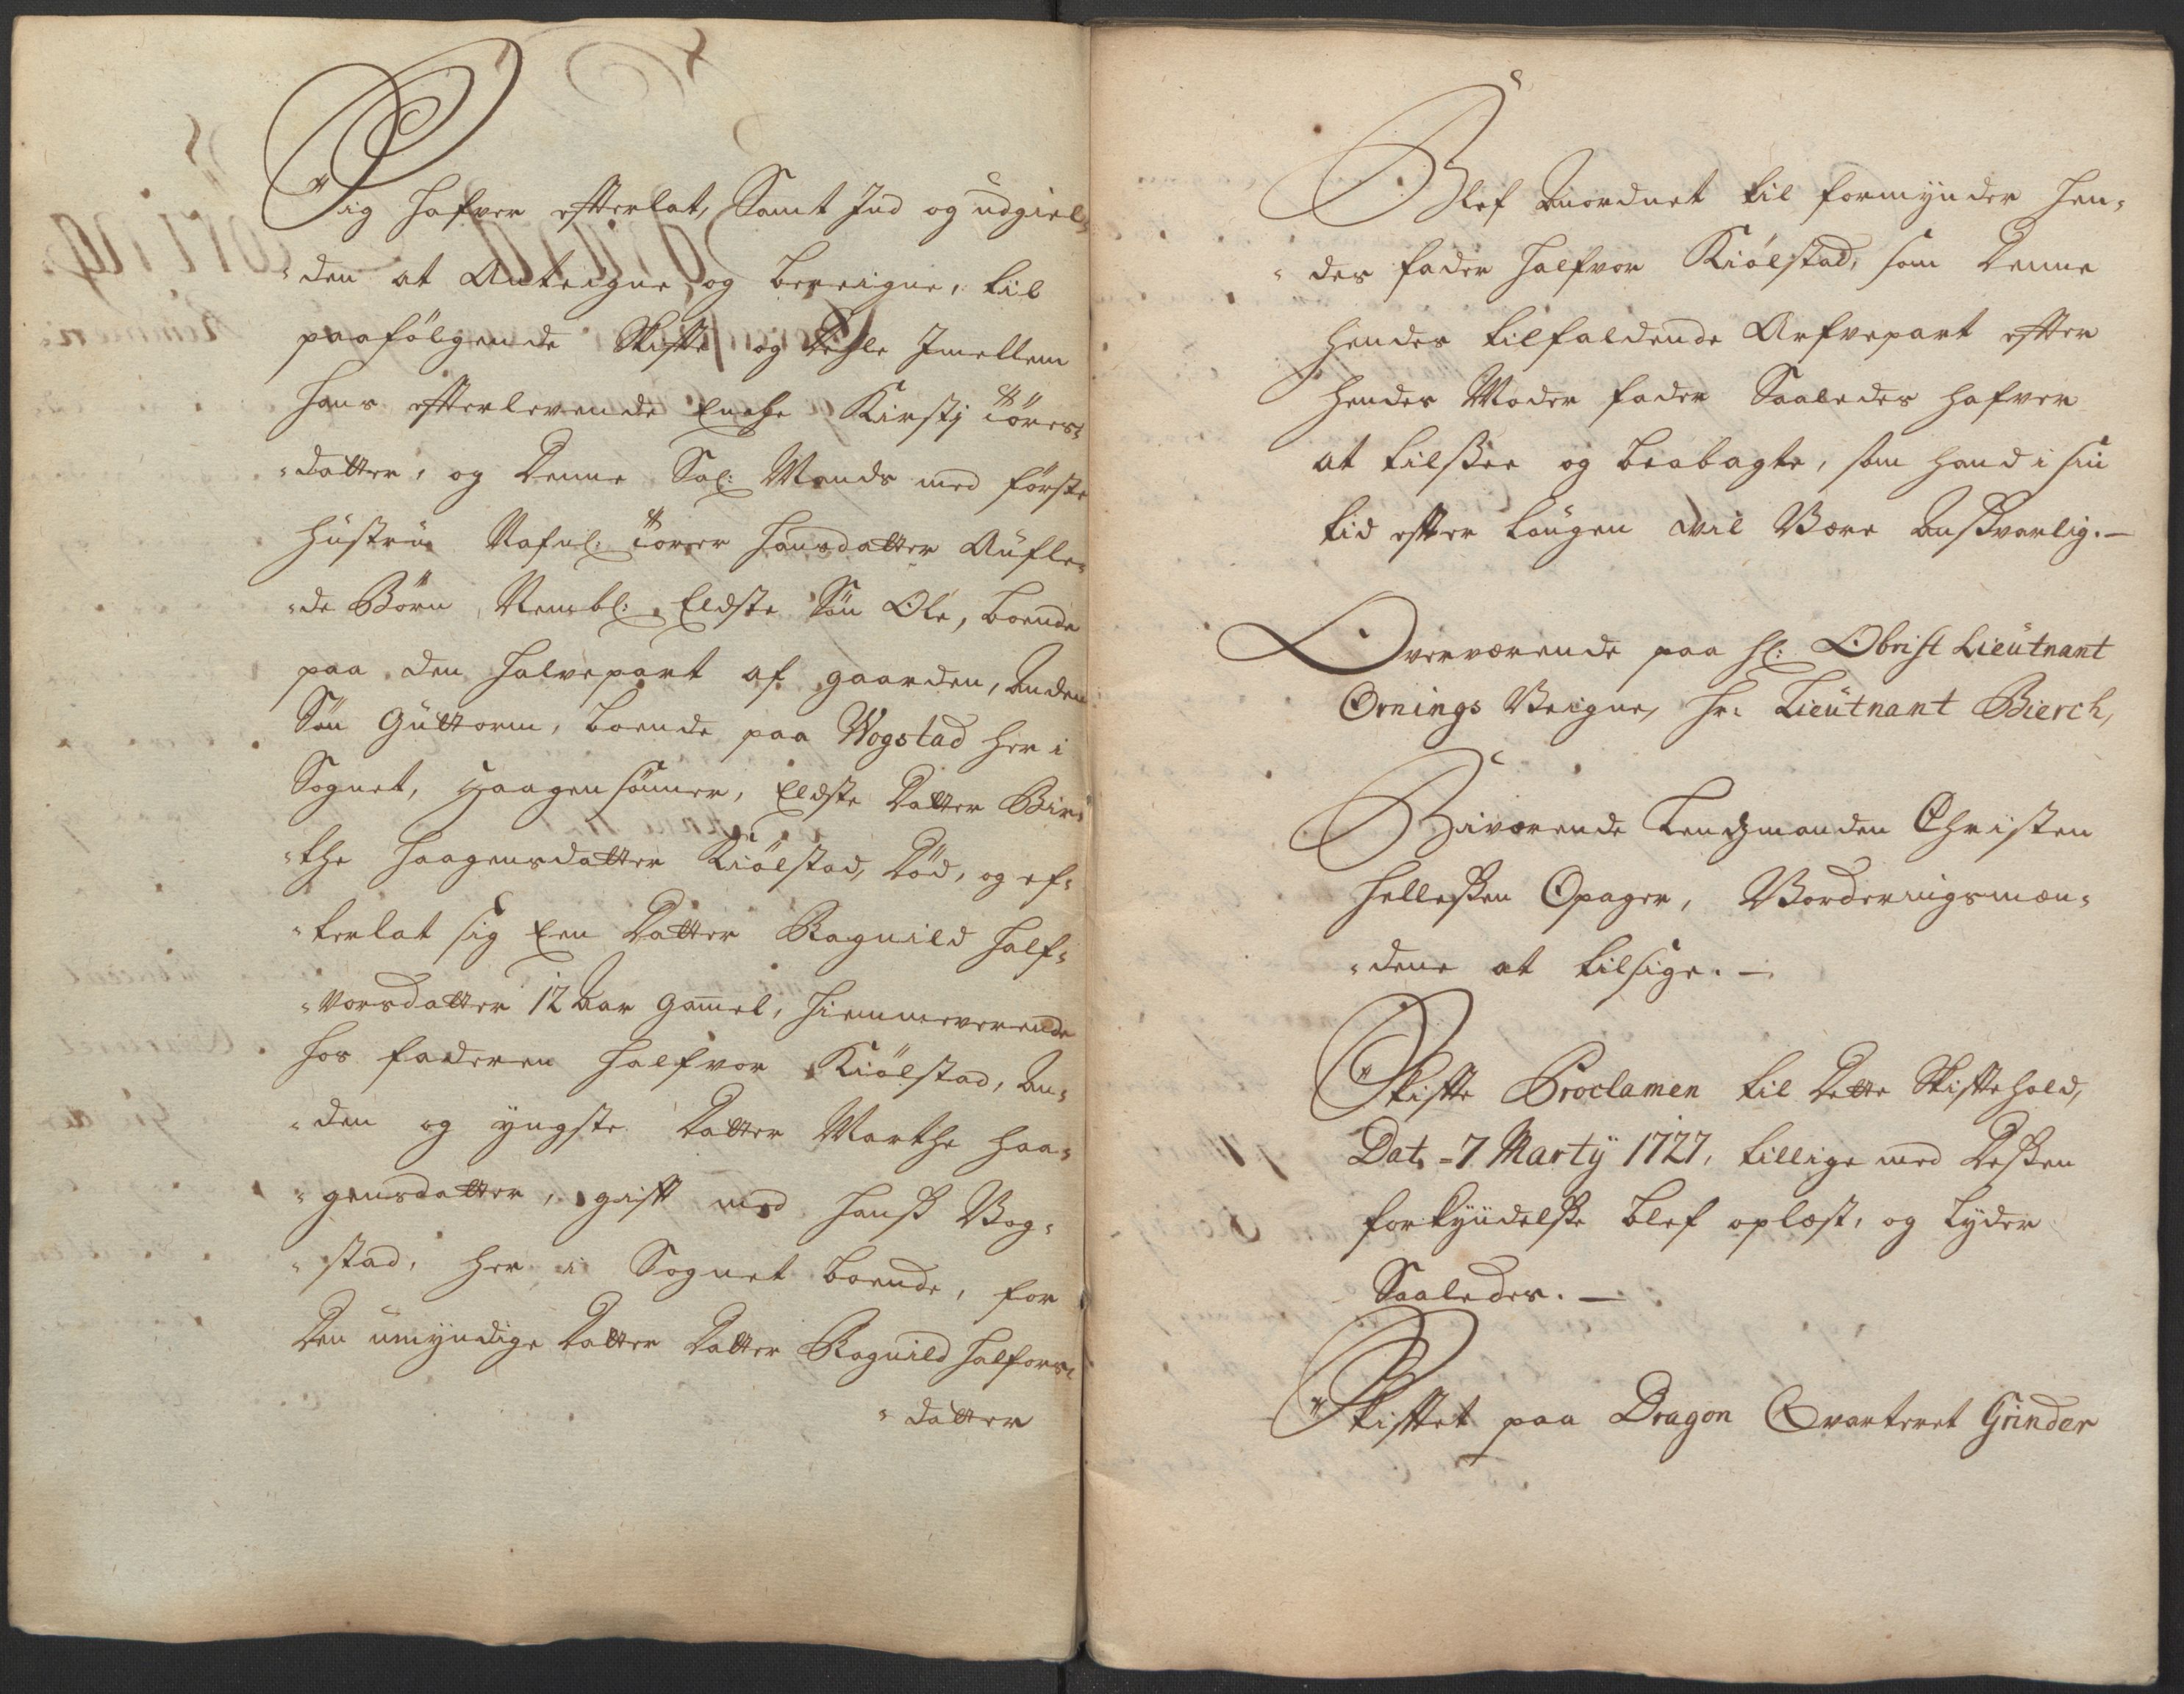 Sig hafver effterlat, Samt Ind og udgiel-
-den at Anteigne og bereigne, til
paafölgende Skiffte og Dehle Imellem
hans effterlevende Enche Kirstj Töres-
-datter, og Denne Sal: Mands med förste
hüstrue Nafnl: Torer Hansdatter Aufle-
-de Börn, Nembl: Eldste Sön Ole, boende
paa den halvepart af gaarden, Anden
Sön Guttorm, boende paa Wogstad her i
Sognet, Haagensönner, Eldste Datter Bir-
-the Haagensdatter Kiölstad, Död, og ef-
-terlat sig Een Datter Ragnild Half-
-vorsdatter 12 Aar gamel, hiemmeverende
hos faderen Halfvor Kiölstad, An-
-den og yngste Datter Marthe Haa-
-gensdatter, gifft med Hansß Vog-
-stad, her i Sognet boende, for
Den umyndige Datter Datter Ragnild Halfvors-
-datter
Blef Anordnet til formynder hen-
-des fader Halfvor Kiölstad, som Denne
hendes tilfaldende Arfvepart effter
hendes Moder fader Saaledes hafver
at tilßee og beobagte, som hand i sin
tid effter Laugen vil Være Ansßvarlig. —
Overværende paa hl: Obrist Lieütnant
Örnings Veigne, Hr: Lieütnant Bierch,
Biværende Lendsmanden Christen
Helleßen Opager, Vorderingsmæn-
-dene at tilsige. —
Skiffte Proclamen til Dette Skifftehold,
Dat. 7 Martij 1727, tillige med Deßen
forkyndelße blef oplæst, og lyder
Saaledes. —
Skifftet paa Dragon Qvarteret Grinder